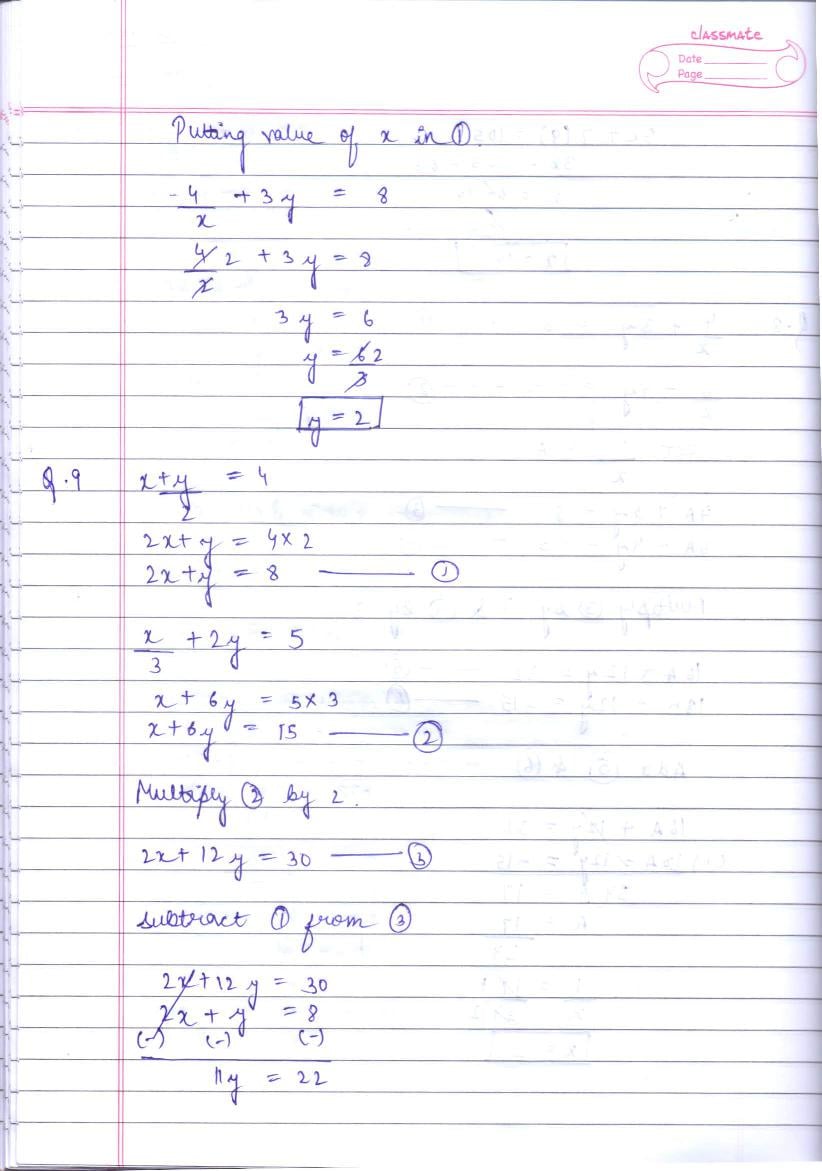 classmate
Date
Page
Putting value of x in ①.
-4/x + 3y = 8
4/x 2 + 3y = 8
3y = 6
y = 6/3 2
y = 2
Q.9 x+y/2 = 4
2x+y = 4×2
2x+y = 8 —— ①
x/3 + 2y = 5
x + 6y = 5×3
x+6y = 15 —— ②
Multiply ② by 2.
2x+12y = 30 —— ③
subtract ① from ③
2x+12y = 30
2x + y = 8
(-) (-) (-)
11y = 22